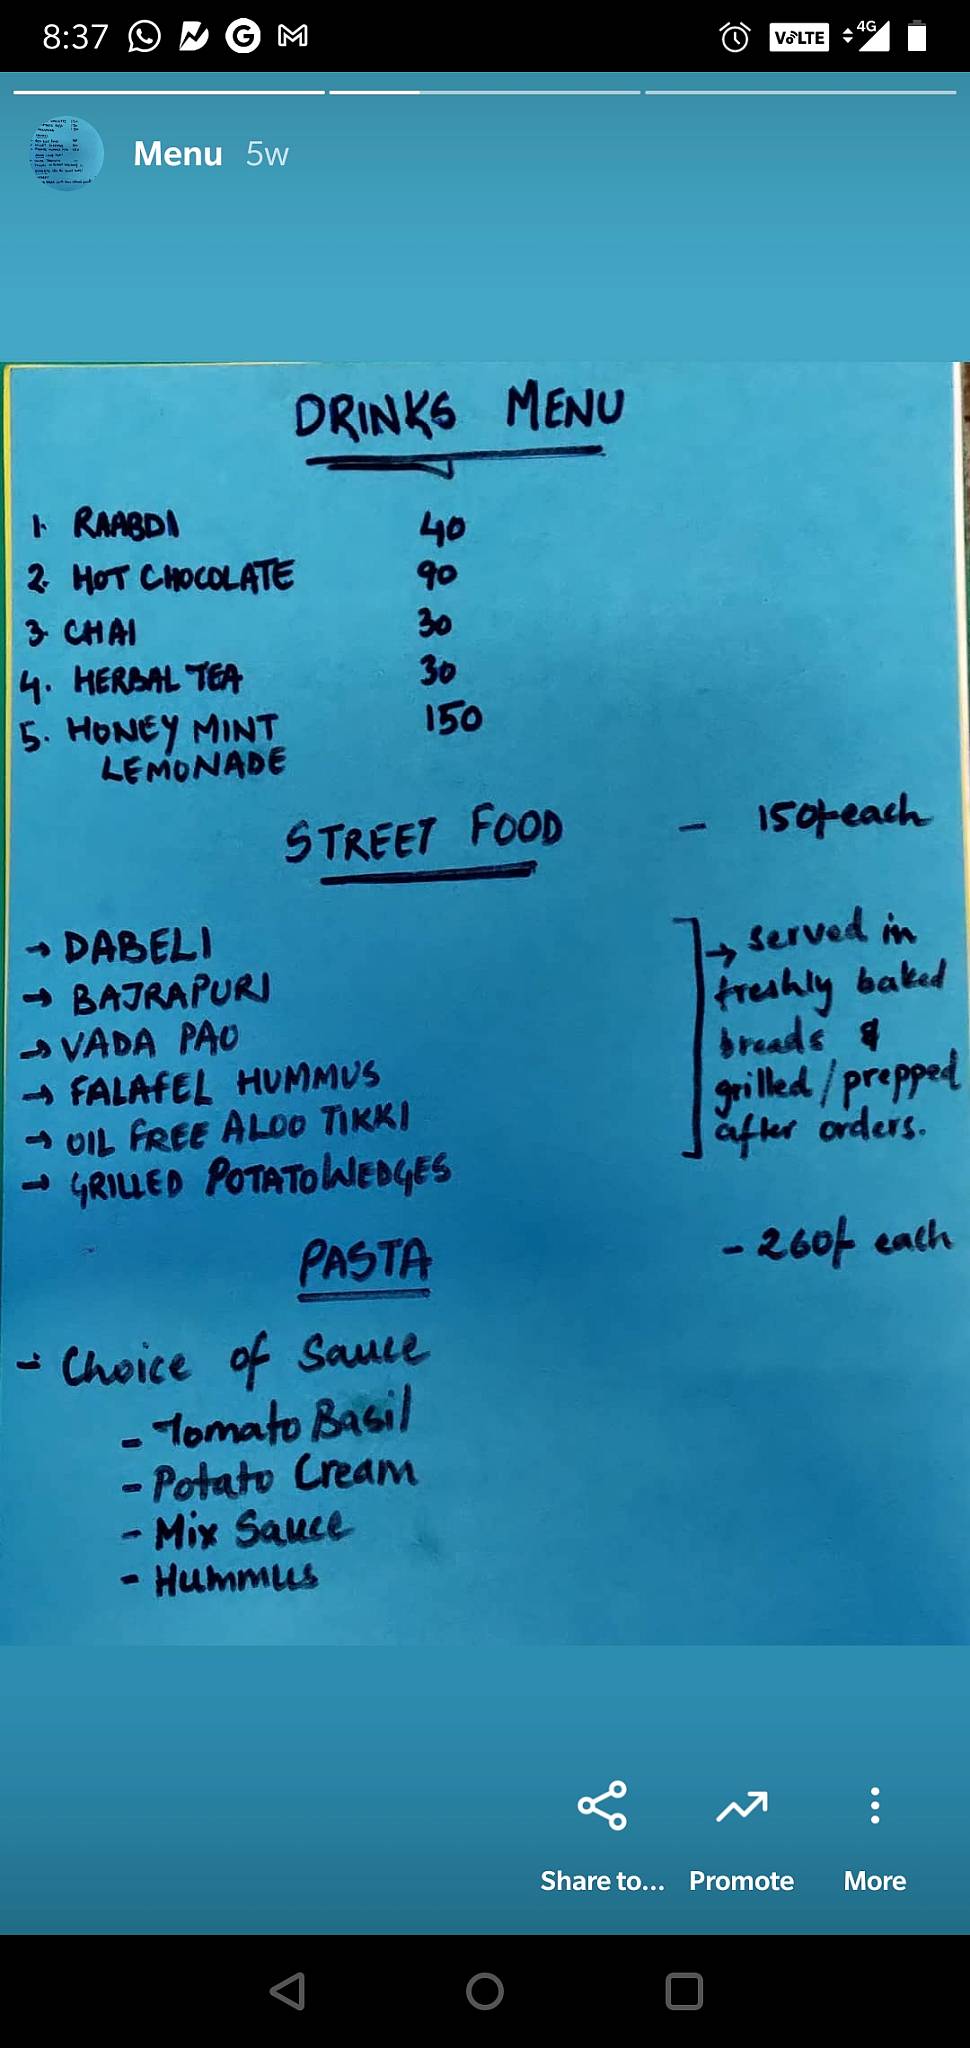 8:37 VoLTE 4G
Menu 5w
DRINKS MENU
1. RAABDI 40
2. HOT CHOCOLATE 90
3. CHAI 30
4. HERBAL TEA 30
5. HONEY MINT 150
LEMONADE
STREET FOOD - 150/- each
→ DABELI
→ BAJRAPURI
→ VADA PAO
→ FALAFEL HUMMUS
→ OIL FREE ALOO TIKKI
→ GRILLED POTATO WEDGES
→ served in
freshly baked
breads &
grilled/prepped
after orders.
PASTA - 260/- each
- Choice of Sauce
- Tomato Basil
- Potato Cream
- Mix Sauce
- Hummus
Share to... Promote More